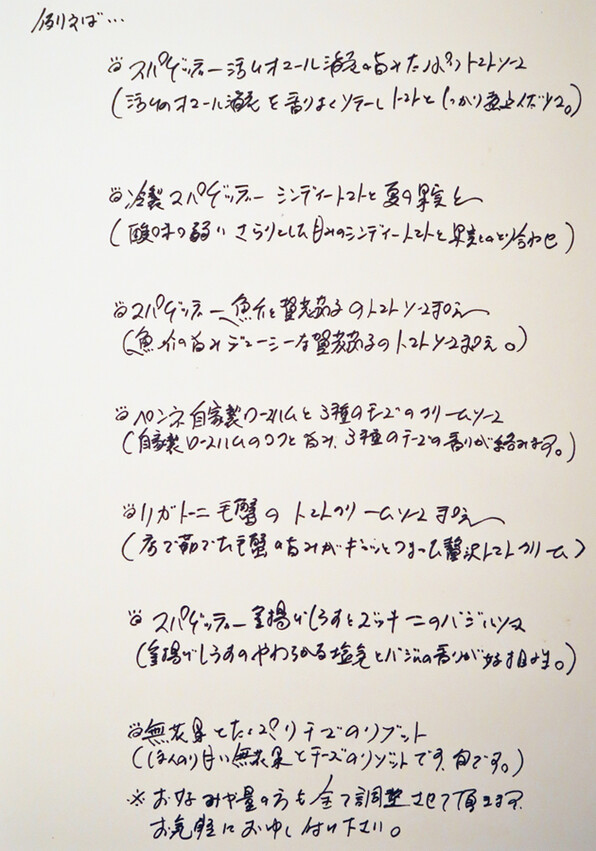 例えば…
スパゲッティー活〆オマール海老の旨みたっぷりトマトソース
(活〆のオマール海老を香りよくソテーしトマトとしっかり煮込んだソース。)
冷製スパゲッティー シンディートマトと夏の果実を
(酸味の弱いさらりとした甘みのシンディートマトと果実とのとり合わせ)
スパゲッティー 魚介と賀茂茄子のトマトソース和え
(魚介の旨みジューシーな賀茂茄子のトマトソース和え。)
ペンネ自家製ロースハムと3種のチーズのクリームソース
(自家製ロースハムのコクと旨み、3種のチーズの香りが絡みます。)
リガトーニ毛蟹のトマトクリームソース和え
(店で茹でた毛蟹の旨みがギュッとつまった贅沢トマトクリーム)
スパゲッティー釜揚げしらすとズッキーニのバジルソース
(釜揚げしらすのやわらかな塩気とバジルの香りが好相性。)
無花果とたっぷりチーズのリゾット
(ほんのり甘い無花果とチーズのリゾットです。旬です。)
※お好みや量の方も全て調整させて頂きます。
お気軽にお申し付け下さい。